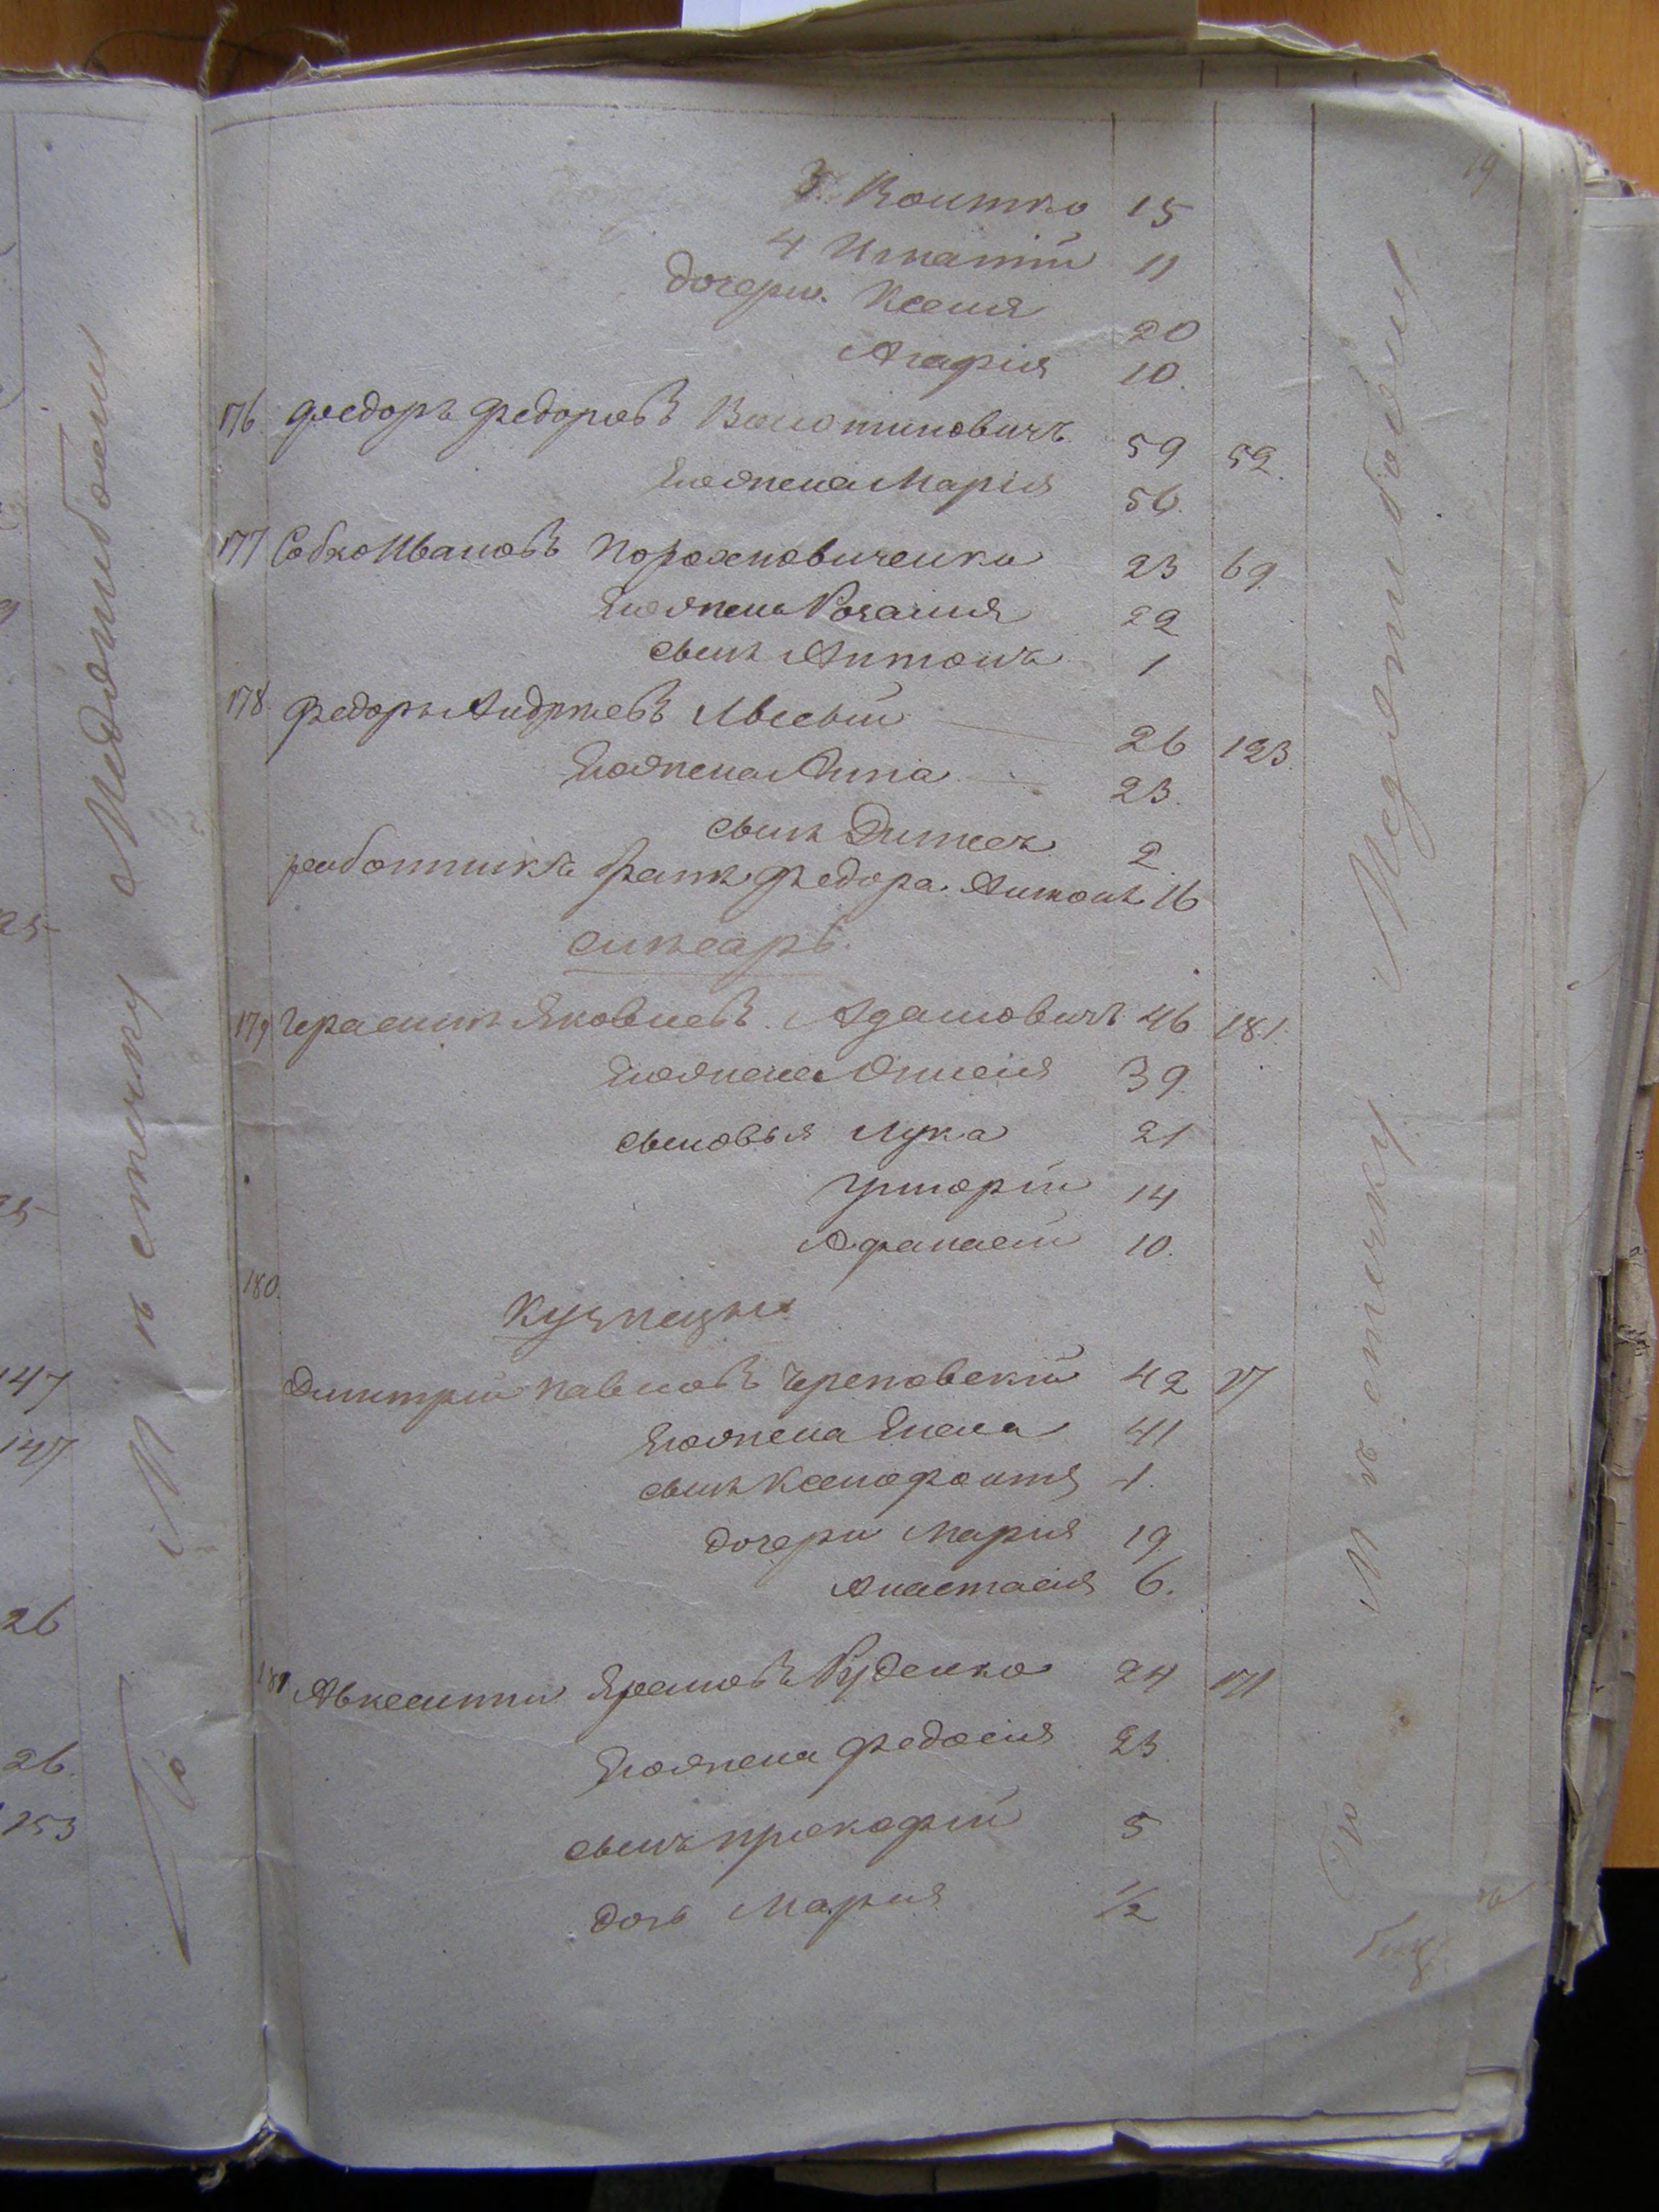 19
3. Коитко 15
4 Игнатій 11
дочери Ксенія 20
Агафія 10.
176 Федоръ Федоровъ 59 52
его жена Марія 56.
177 Собко Ивановъ Порохновиченко 23 69
его жена Розалия 22
сынъ Антонъ 1
178 Федоръ Андреевъ Лысый 26 123
его жена Анна 23.
сынъ 2
работникъ братъ Федора Антонъ 16
слесарь
179 Герасимъ Яковлевъ Адамовичъ 46 181.
его жена 39
сыновья Лука 21
Григорій 14
Афанасій 10.
180.
Кузнецы
Димитрій Павловъ Череповскій 42 27
его жена Елена 41
сынъ Ксенофонтъ 1.
дочери Марія 19
Анастасія 6.
181 Авксентій Руденко 24 171
его жена Федосія 23
сынъ Прокофій 5
дочь Марія 1/2
По Мѣстечку Меджибожу
По Мѣстечку Меджибожу
25
147
147
26
26.
153